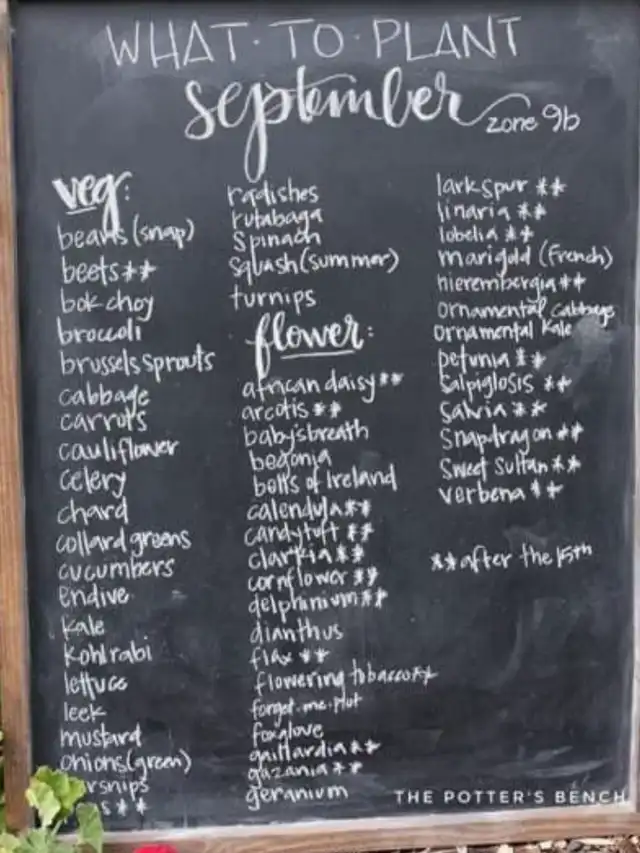 WHAT·TO·PLANT
september
zone 9b
veg:
beans (snap)
beets **
bok choy
broccoli
brussels sprouts
cabbage
carrots
cauliflower
celery
chard
collard greens
cucumbers
endive
kale
kohlrabi
lettuce
leek
mustard
onions (green)
rsnips
s **
radishes
rutabaga
spinach
squash (summer)
turnips
flower:
african daisy **
arcotis **
baby's breath
begonia
bells of Ireland
calendula **
candytuft **
clarkia **
cornflower **
delphinium **
dianthus
flax **
flowering tobacco **
forget·me·not
foxglove
gaillardia **
gazania **
geranium
larkspur **
linaria **
lobelia **
marigold (French)
nierembergia **
ornamental cabbage
ornamental kale
petunia **
salpiglosis **
salvia **
snapdragon **
sweet sultan **
verbena **
** after the 15th
THE POTTER'S BENCH